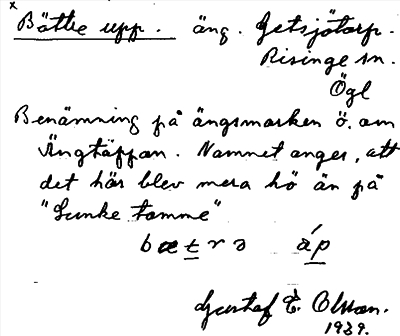 x
Bättre upp. äng. Getsjötorp.
Risinge sn.
Ögl
Benämning på ängsmarken ö. om
Ängtäppan. Namnet anger, att
det här blev mera hö än på
"Lunketomme"
bætrə áp
Gustaf E. Olsson.
1939.